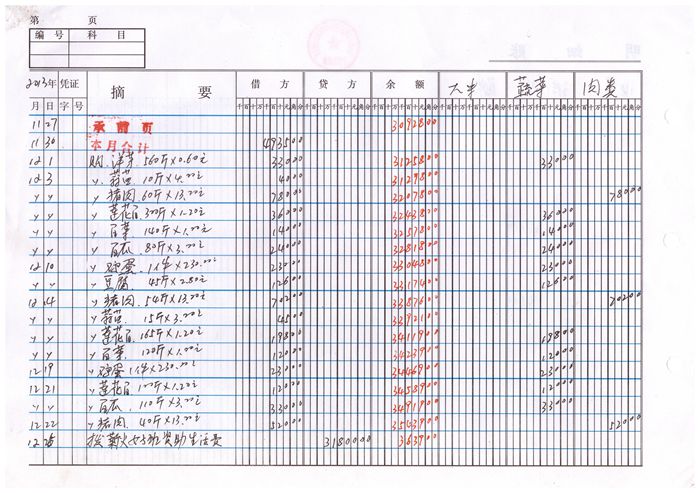 第 页
编号 科目
2013年 凭证 摘要 借方 贷方 余额 大米 蔬菜 肉类
月 日 字 号 千百十万千百十元角分 千百十万千百十元角分 千百十万千百十元角分
11 27 承前页 3092800
11 30 本月合计 493500
12 1 购 洋芋 560斤×0.60元 33000 3125800 33000
12 3 〃 蒜苗 10斤×4.00元 4000 3129800
〃 〃 〃 猪肉 60斤×13.00元 78000 3207800 78000
〃 〃 〃 莲花白 300斤×1.20元 36000 3243800 36000
〃 〃 〃 白菜 140斤×1.00元 14000 3257800 14000
〃 〃 〃 白瓜 80斤×3.00元 24000 3281800 24000
12 10 〃 鸡蛋 1件×230.00元 23000 3304800 23000
〃 〃 〃 豆腐 45斤×2.80元 12600 3317400 12600
12 14 〃 猪肉 54斤×13.00元 70200 3387600 70200
〃 〃 〃 蒜苗 15斤×3.00元 4500 3392100
〃 〃 〃 莲花白 165斤×1.20元 19800 3411900 19800
〃 〃 〃 白菜 120斤×1.00元 12000 3423900 12000
12 19 〃 鸡蛋 1件×230.00元 23000 3446900 23000
12 21 〃 莲花白 100斤×1.20元 12000 3458900 12000
〃 〃 〃 白瓜 110斤×3.00元 33000 3491900 33000
12 22 〃 猪肉 40斤×13.00元 52000 3543900 52000
12 25 拨 女子班资助生活费 3180000 363900